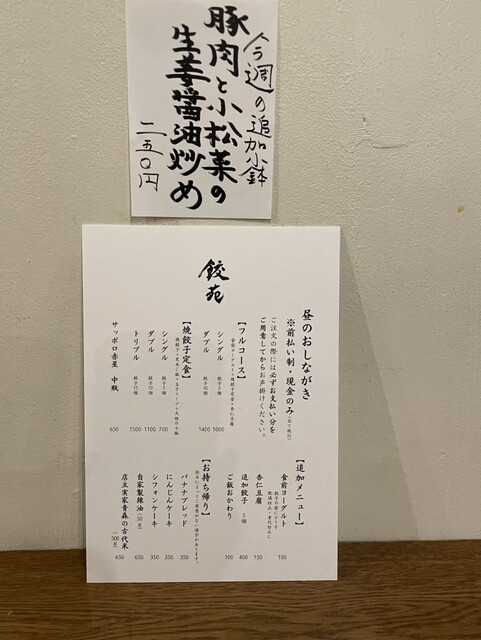 今週の追加小鉢
豚肉と小松菜の
生姜醤油炒め
二五〇円
餃苑
昼のおしながき
※前払い制・現金のみ(全て税込)
ご注文の際には必ずお支払い分を
ご用意してからお声掛けください。
【フルコース】
食前ヨーグルト+焼餃子定食+杏仁豆腐
シングル 餃子5個 1000
ダブル 餃子10個 1400
【焼餃子定食】
シングル 餃子5個 700
ダブル 餃子10個 1100
トリプル 餃子15個 1500
サッポロ赤星 中瓶 650
【追加メニュー】
食前ヨーグルト 150
杏仁豆腐 150
追加餃子 5個 400
ご飯おかわり 100
【お持ち帰り】
バナナブレッド 350
にんじんケーキ 350
シフォンケーキ 350
自家製辣油(50g) 650
店主実家青森の古代米(500g) 650